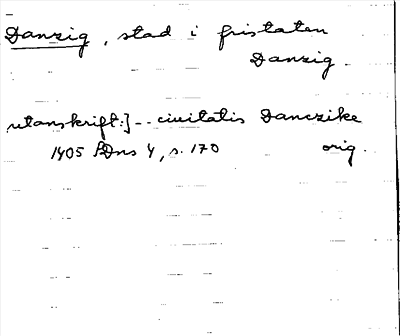 Danzig, stad i fristaten
Danzig.
utanskrift:] - - ciuitatis Danczike
1405 SDns 4, s. 170 orig.